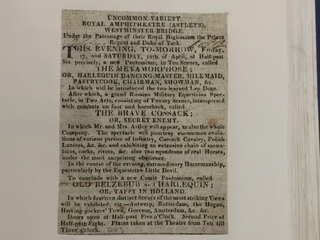 UNCOMMON VARIETY.
ROYAL AMPHITHEATRE (ASTLEY'S),
WESTMINSTER-BRIDGE.
Under the Patronage of their Royal Highnesses the Prince
Regent and Duke of York.
THIS EVENING, TO-MORROW, Friday,
17, and SATURDAY, 18th of April, at Half-past
Six precisely, a new Pantomime, in Ten Scenes, called
THE METAMORPHOSE;
OR, HARLEQUIN DANCING-MASTER, MILKMAID,
PASTRYCOOK, CHAIRMAN, SHOWMAN, &c.
In which will be introduced the two learned Lap Dogs.
After which, a grand Russian Military Equestrian Spec-
tacle, in Two Acts, consisting of Twenty Scenes, interspersed
with combats on foot and horseback, called
THE BRAVE COSSACK;
OR, SECRET ENEMY.
In which Mr. and Mrs. Astley will appear, as also the whole
Company. The spectacle will pourtray uncommon evolu-
tions of various parties of Infantry, Cossack Cavalry, Polish
Lancers, &c. &c. and exhibiting an extensive chain of moun-
tains, rocks, rivers, &c. also two squadrons of real Horses,
under the most surprising obedience.
In the course of the evening, extraordinary Horsemanship,
particularly by the Equestrian Little Devil.
To conclude with a new Comic Pantomime, called
OLD BELZEBUB and HARLEQUIN;
OR, TAFFY IN HOLLAND.
In which fourteen distinct Scenes of the most striking Views
will be exhibited, viz.—Antwerp, Rotterdam, the Hague,
Herring-picklers' Town, Guernes, Amsterdam, &c. &c.
Doors open at Half-past Five o'Clock. Second Price at
Half-past Eight. Places taken at the Theatre from Ten till
Three o'clock.